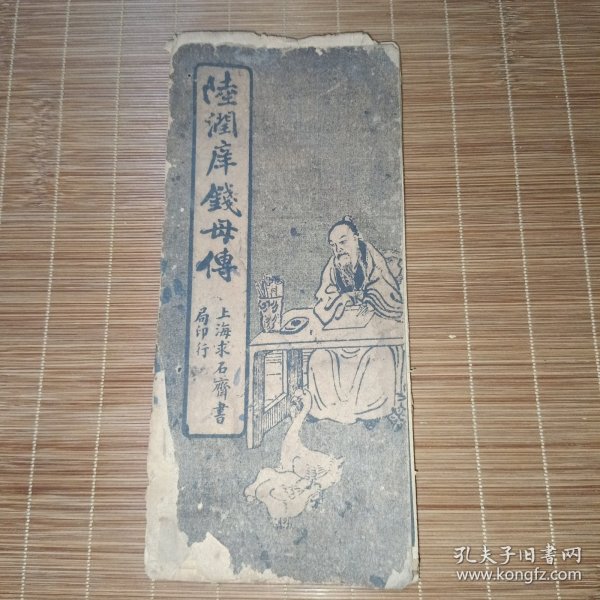 陸潤庠錢母傳
上海求石齋書
局印行
孔夫子旧書网
www.kongfz.com